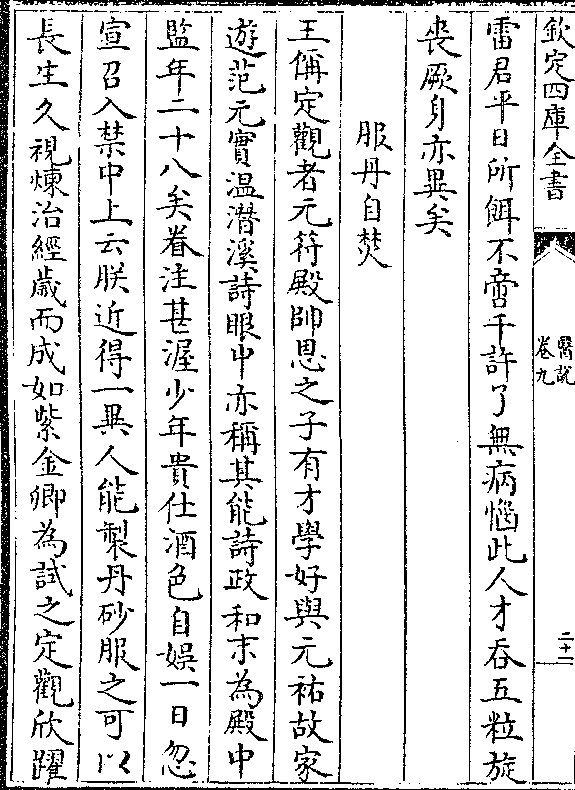 欽定四庫全書
醫說
卷九
二十二
雷君平日所餌不啻千許了無病惱此人才吞五粒旋
喪厥身亦異矣
服丹自焚
王偁定觀者元符殿帥恩之子有才學好與元祐故家
遊范元實溫潛溪詩眼中亦稱其能詩政和末為殿中
監年二十八矣眷注甚渥少年貴仕酒色自娛一日忽
宣召入禁中上云朕近得一異人能製丹砂服之可以
長生久視煉治經歲而成如紫金卿為試之定觀欣躍